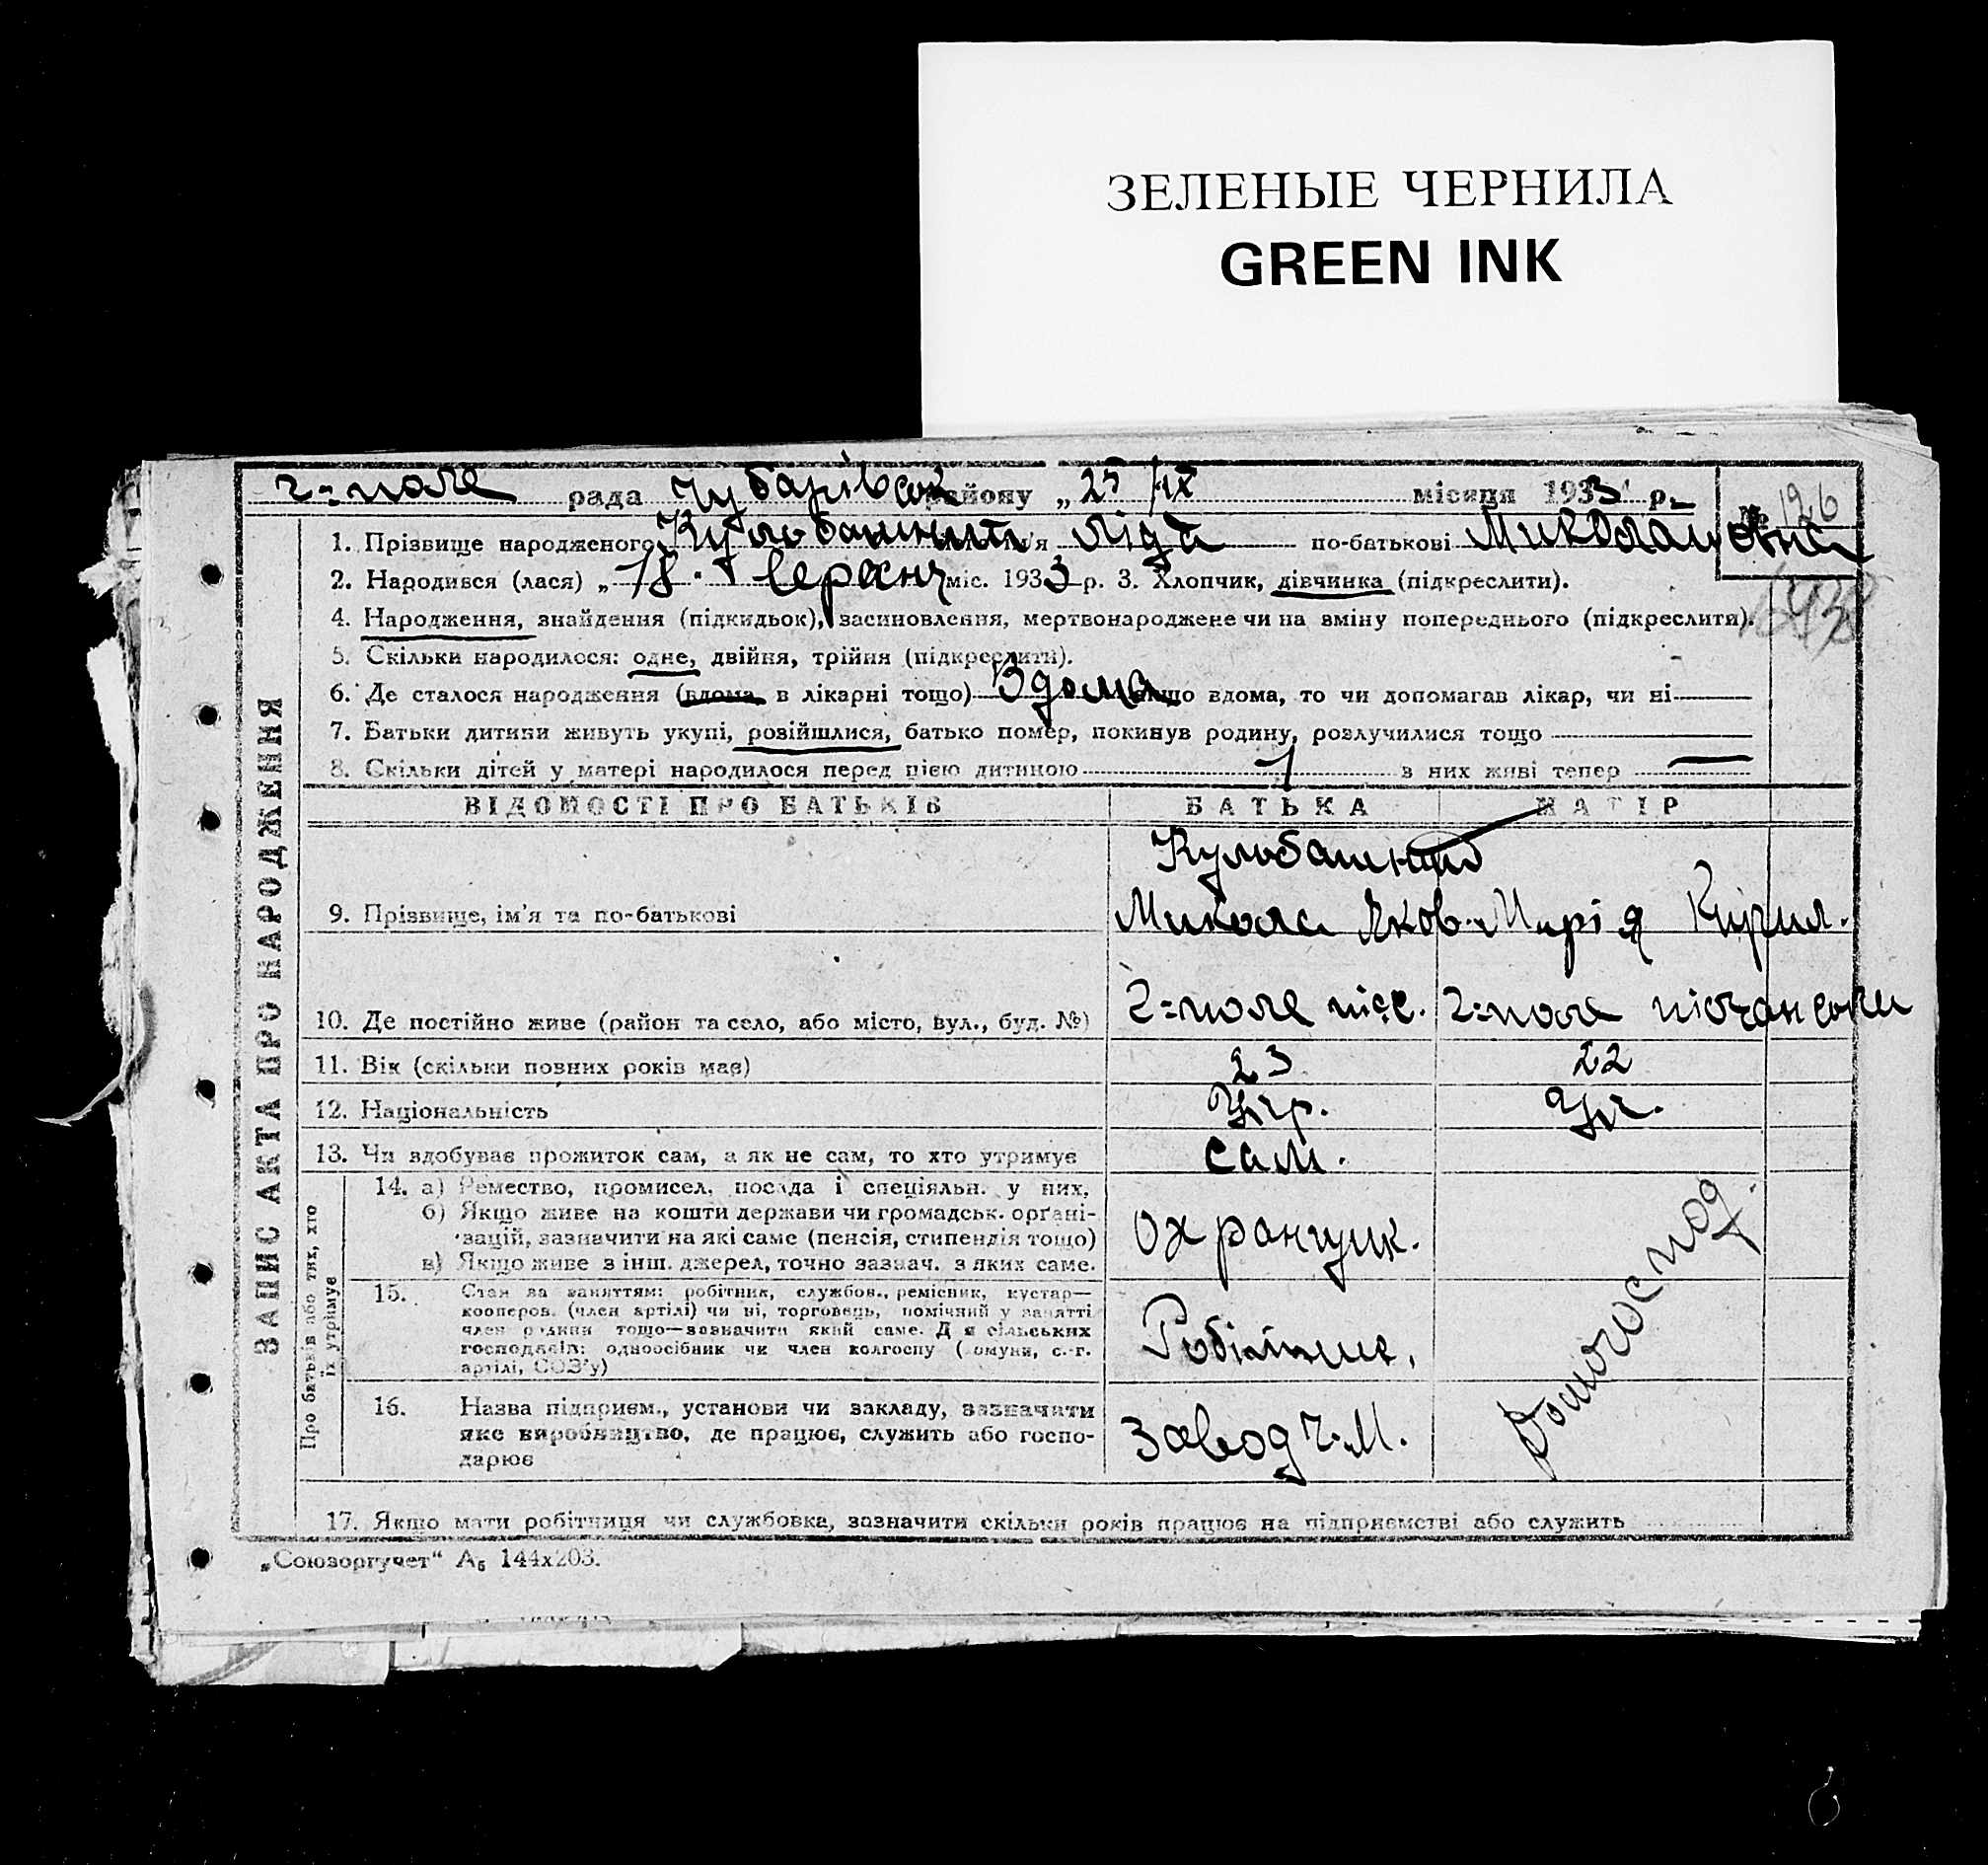 ЗЕЛЕНЫЕ ЧЕРНИЛА
GREEN INK
г=поле рада Чубарівськ району „25/IX місяця 1933 р.
№ 126
1. Прізвище народженого ім'я Ліда по-батькові Миколаївна
2. Народився (лася) „18" Серпня міс. 1933 р. 3. Хлопчик, дівчинка (підкреслити).
4. Народження, знайдення (підкидьок), засиновлення, мертвонароджене чи на зміну попереднього (підкреслити).
5. Скільки народилося: одне, двійня, трійня (підкреслити).
6. Де сталося народження (вдома, в лікарні тощо) Вдома якщо вдома, то чи допомагав лікар, чи ні
7. Батьки дитини живуть укупі, розійшлися, батько помер, покинув родину, розлучилися тощо
8. Скільки дітей у матері народилося перед цією дитиною 1 з них живі тепер —
ЗАПИС АКТА ПРО НАРОДЖЕННЯ
ВІДОМОСТІ ПРО БАТЬКІВ БАТЬКА МАТІР
9. Прізвище, ім'я та по-батькові Микола Яков. Марія Кирил.
10. Де постійно живе (район та село, або місто, вул., буд. №) г=поле піск. г=поле
11. Вік (скільки повних років має) 23 22
12. Національність Укр. Ук.
13. Чи здобуває прожиток сам, а як не сам, то хто утримує сам.
Про батьків або тих, хто їх утримує
14. а) Ремество, промисел, посада і спеціяльн. у них,
б) Якщо живе на кошти держави чи громадськ. орґані-
зацій, зазначити на які саме (пенсія, стипендія тощо)
в) Якщо живе з інш. джерел, точно зазнач. з яких саме.
Охранщик.
15. Стан за заняттям: робітник, службов., ремісник, кустар—
кооперов. (член артілі) чи ні, торговець, помічний у занятті
член родини тощо—зазначити який саме. Для сільських
господарів: одноосібник чи член колгоспу (комуни, с.-г.
артілі, СОЗ'у)
Робітник.
16. Назва підприєм., установи чи закладу, зазначити
яке виробництво, де працює, служить або госпо-
дарює
Завод Ч.М.
Домогоспод.
17. Якщо мати робітниця чи службовка, зазначити скільки років працює на підприємстві або служить
„Союзоргучет" А₅ 144x203.